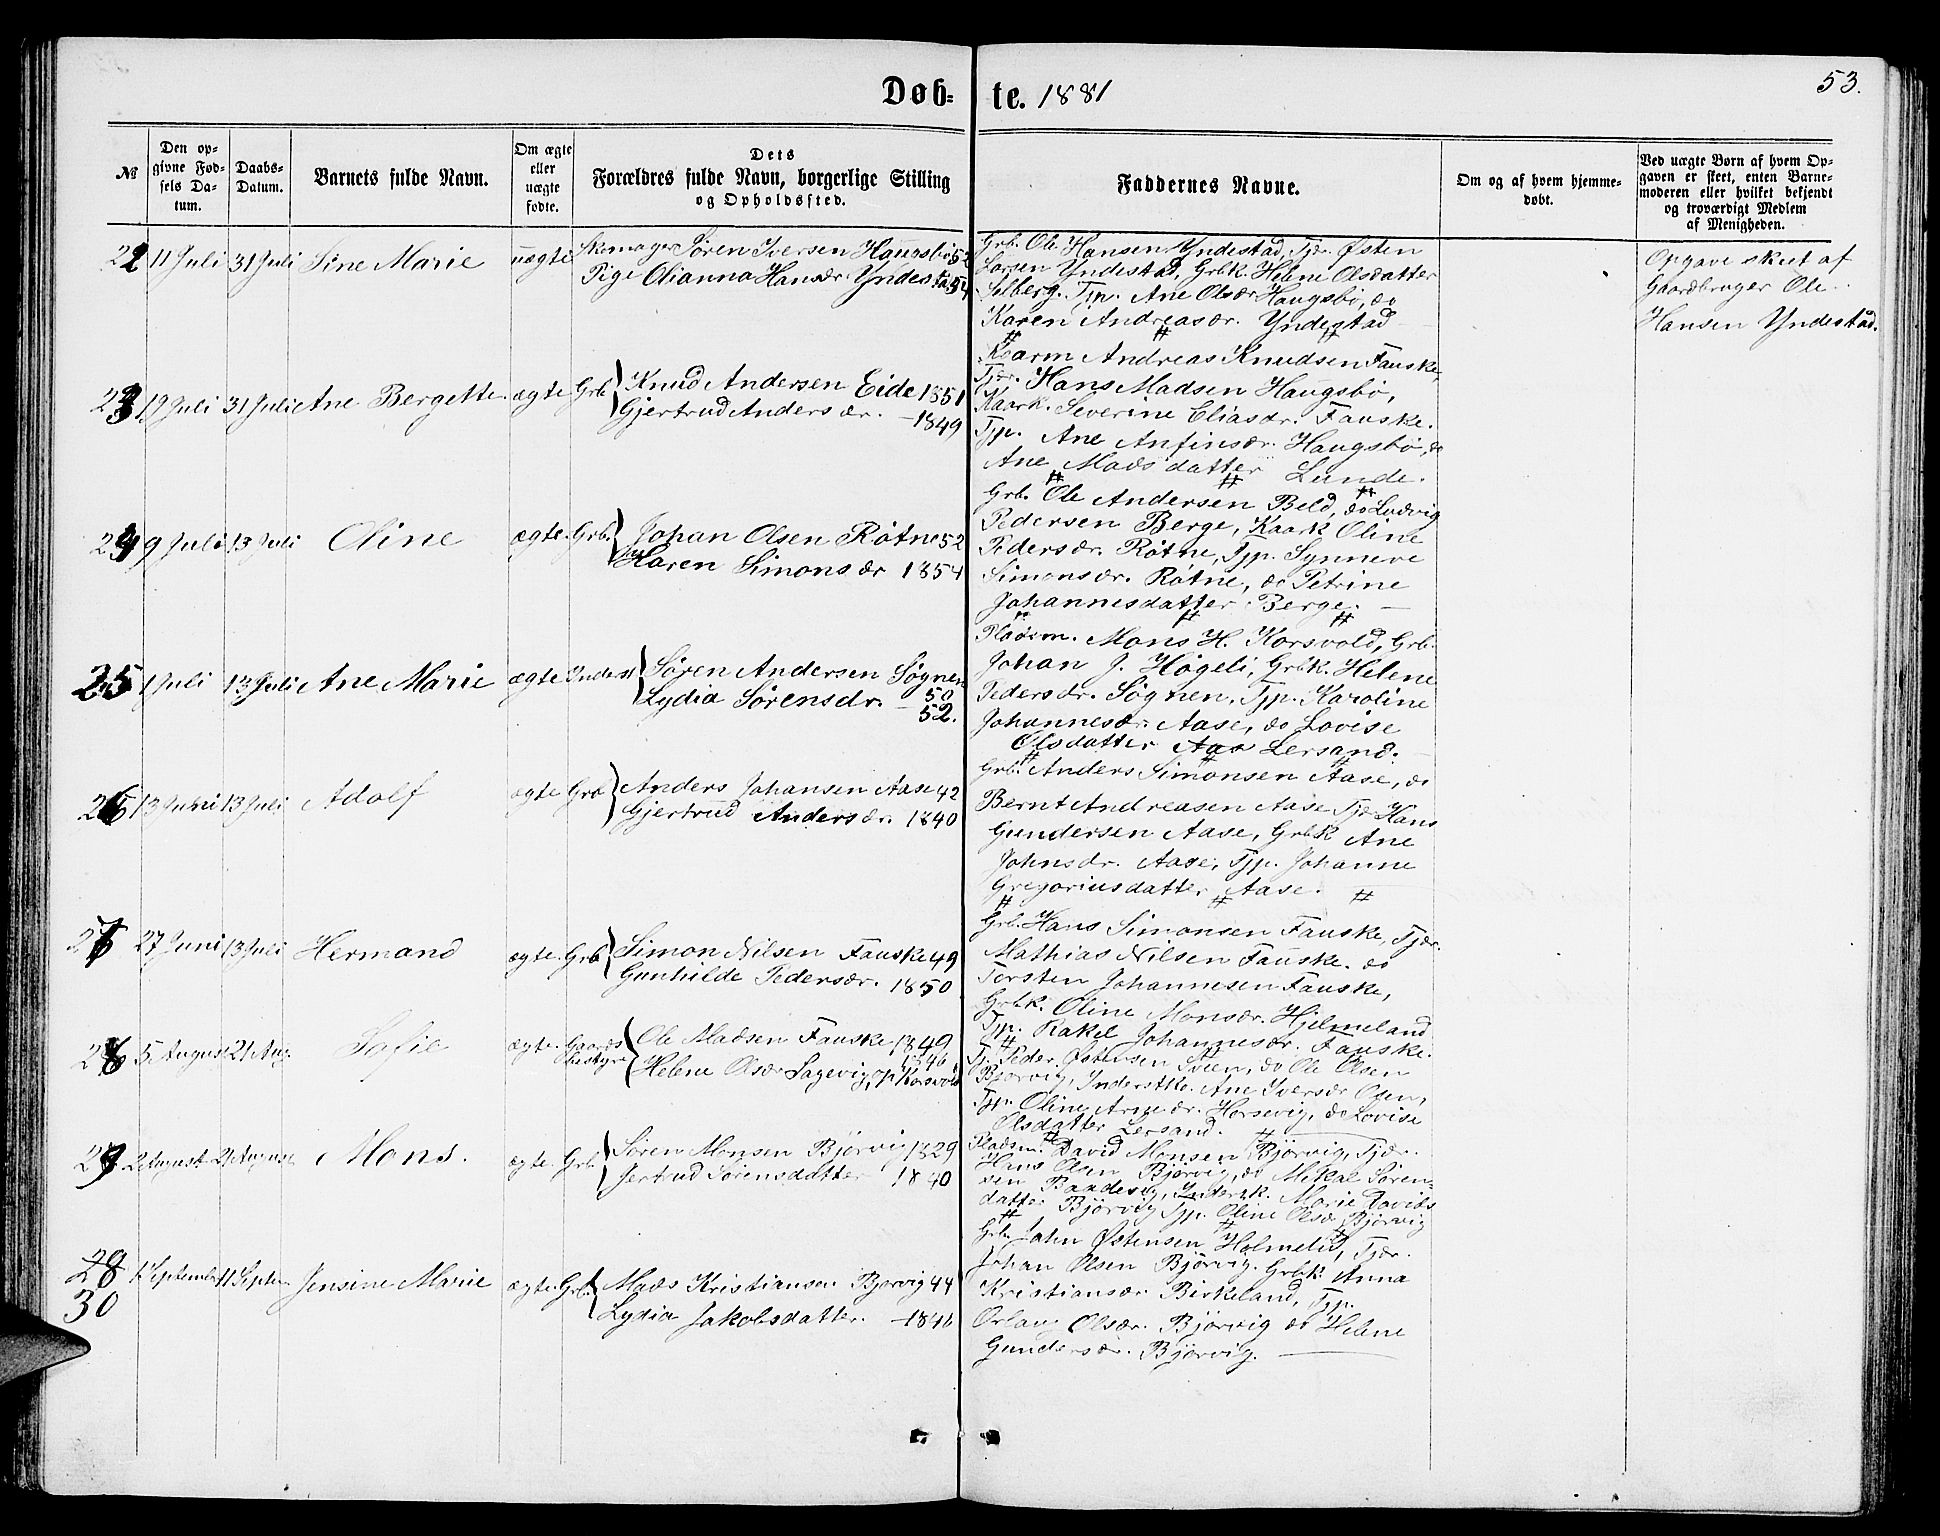 Døb-te. 1881
53.
№
Den opgivne Fødsels Datum.
Daabs-Datum.
Barnets fulde Navn.
Om ægte eller uægte fødte.
Dets Forældres fulde Navn, borgerlige Stilling og Opholdssted.
Faddernes Navne.
Om og af hvem hjemmedøbt.
Ved uægte Børn af hvem Opgaven er skeet, enten Barnemoderen eller hvilket bekjendt og troværdigt Medlem af Menigheden.
22 11 Juli 31 Juli Sine Marie uægte
Skomager Søren Iversen Haugsbø 52
Pige Olianna Hansdr. Yndestad 54
Grb. Ole Hansen Yndestad, Tjr. Østen
Larsen Yndestad, Grbk. Helene Olsdatter
Solberg. Tjp. Ane Olsdr Haugsbø, do
Karen Andreasdr. Yndestad
Opgave skeet af
Gaardbruger Ole
Hansen Yndestad.
23 19 Juli 31 Juli Ane Bergette ægte Grb
Knud Andersen Eide 1851
Gjertrud Andersdr. — 1849
Kaarm Andreas Knudsen Fauske,
Tjr. Hans Madsen Haugsbø,
Kaark. Severine Eliasdr. Fauske.
Tjp. Ane Anfinsdr. Haugsbø, do
Ane Madsdatter Lunde.
24 9 Juli 13 Juli Oline ægte Grb.
Johan Olsen Røtne 52
Karen Simonsdr 1854
Grb. Ole Andersen Beld, do Ludvig
Pedersen Berge, Kaark Oline
Pedersdr. Røtne, Tjp. Synneve
Simonsdr. Røtne, do Petrine
Johannesdatter Berge. —
25 1 Juli 13 Juli Ane Marie ægte Inderst
Søren Andersen Søgnen
50
Lydia Sørensdr. — 52.
Pladsm. Mons H. Korsvold, Grb.
Johan J. Høgeli, Grbk. Helene
Pedersdr. Søgnen, Tjp. Karoline
Johannesdr. Aase, do Lovise
Olsdatter Aas Lersand.
26 13 Juni 13 Juli Adolf ægte Grb
Anders Johansen Aase 42
Gjertrud Andersdr. 1840
Grb. Anders Simonsen Aase, do
Bernt Andreasen Aase Tjr Hans
Gundersen Aase, Grbk Ane
Johnsdr. Aase, Tjp. Johanne
Gregoriusdatter Aase.
27 27 Juni 13 Juli Hermand ægte. Grb
Simon Nilsen Fauske 49
Gunhilde Pedersdr. 1850
Grb. Hans Simonsen Fauske, Tjr.
Mathias Nilsen Fauske. do
Torsten Johannesen Fauske,
Grbk. Oline Monsdr. Hjelmeland
Tjp. Rakel Johannesdr. Fauske.
28 5 August 21 Aug. Sofie ægte. Gaardsbestyr
Ole Madsen Fauske 1849
1846
Helene Olsdr Sagevig, op Korsvold
Tj. Peder Østensen Svien, do Ole Olsen
Bjørvig, Inderstko. Ane Iversdr Osen,
Tjp. Oline Arnedr. Horsevig, do Lovise
Olsdatter Lersand.
29 2 August 21 August Mons. ægte. Grb
Søren Monsen Bjørvig 1829
Jertrud Sørensdatter 1840
Pladsm. David Monsen Bjørvig, Tjr.
Hans Olsen Bjørvig, do Mikal Sørensen
Bandevig, Inderk. Marie Davids
datter Bjørvig Tjp. Oline Olsdr Bjørvig
28
30 1 September 11 Septem Jensine Marie ægte. Grb.
Mads Kristiansen Bjørvig 44
Lydia Jakobsdatter. — 1846
Grb. John Østensen Holmelid, Tjr.
Johan Olsen Bjørvig. Grbk. Anna
Kristiansdr. Birkeland, Tjp.
Orlaug Olsdr. Bjørvig do Helene
Gundersdr. Bjørvig. —